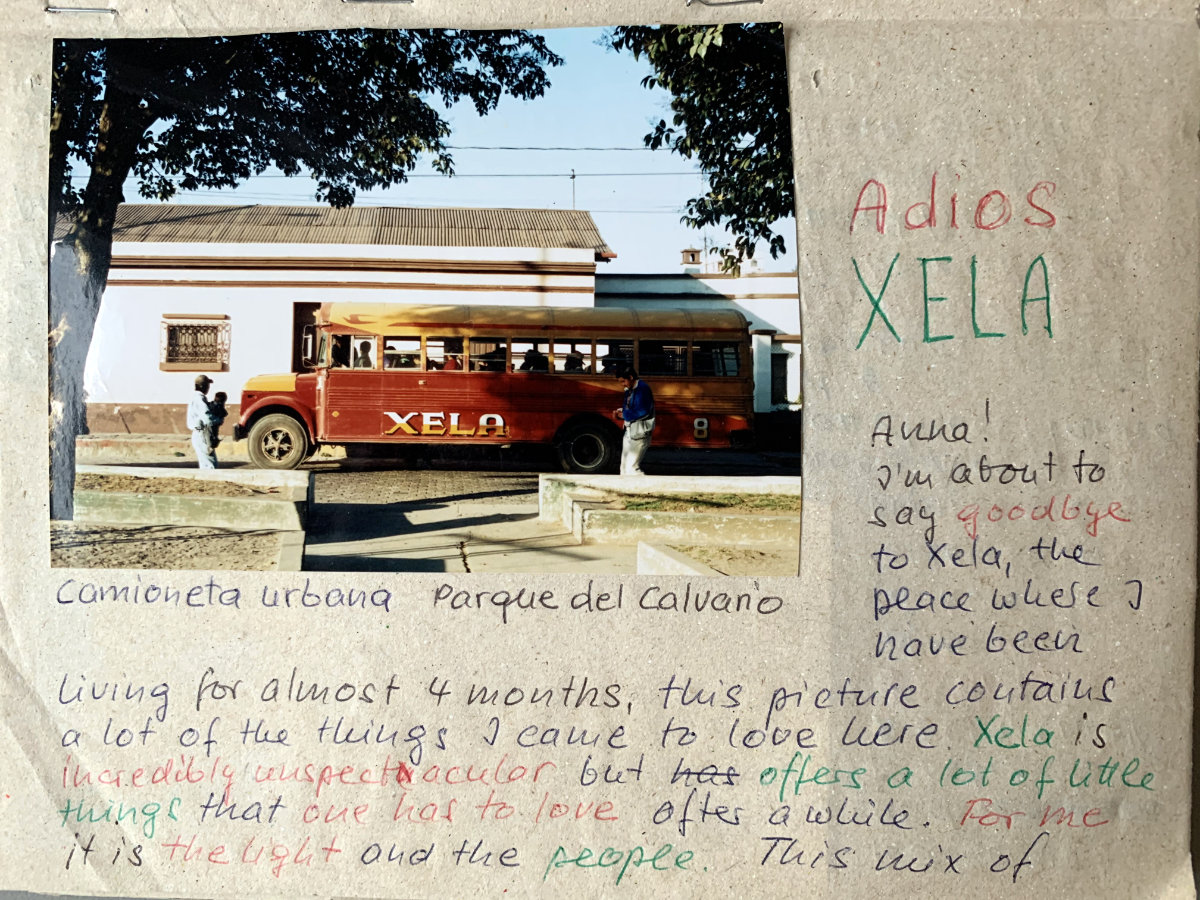 XELA
8
Adios
XELA
Camioneta urbana Parque del Calvario
Anna!
I'm about to
say goodbye
to Xela, the
peace where I
have been
living for almost 4 months, this picture contains
a lot of the things I came to love here. Xela is
incredibly unspectacular but has offers a lot of little
things that one has to love after a while. For me
it is the light and the people. This mix of